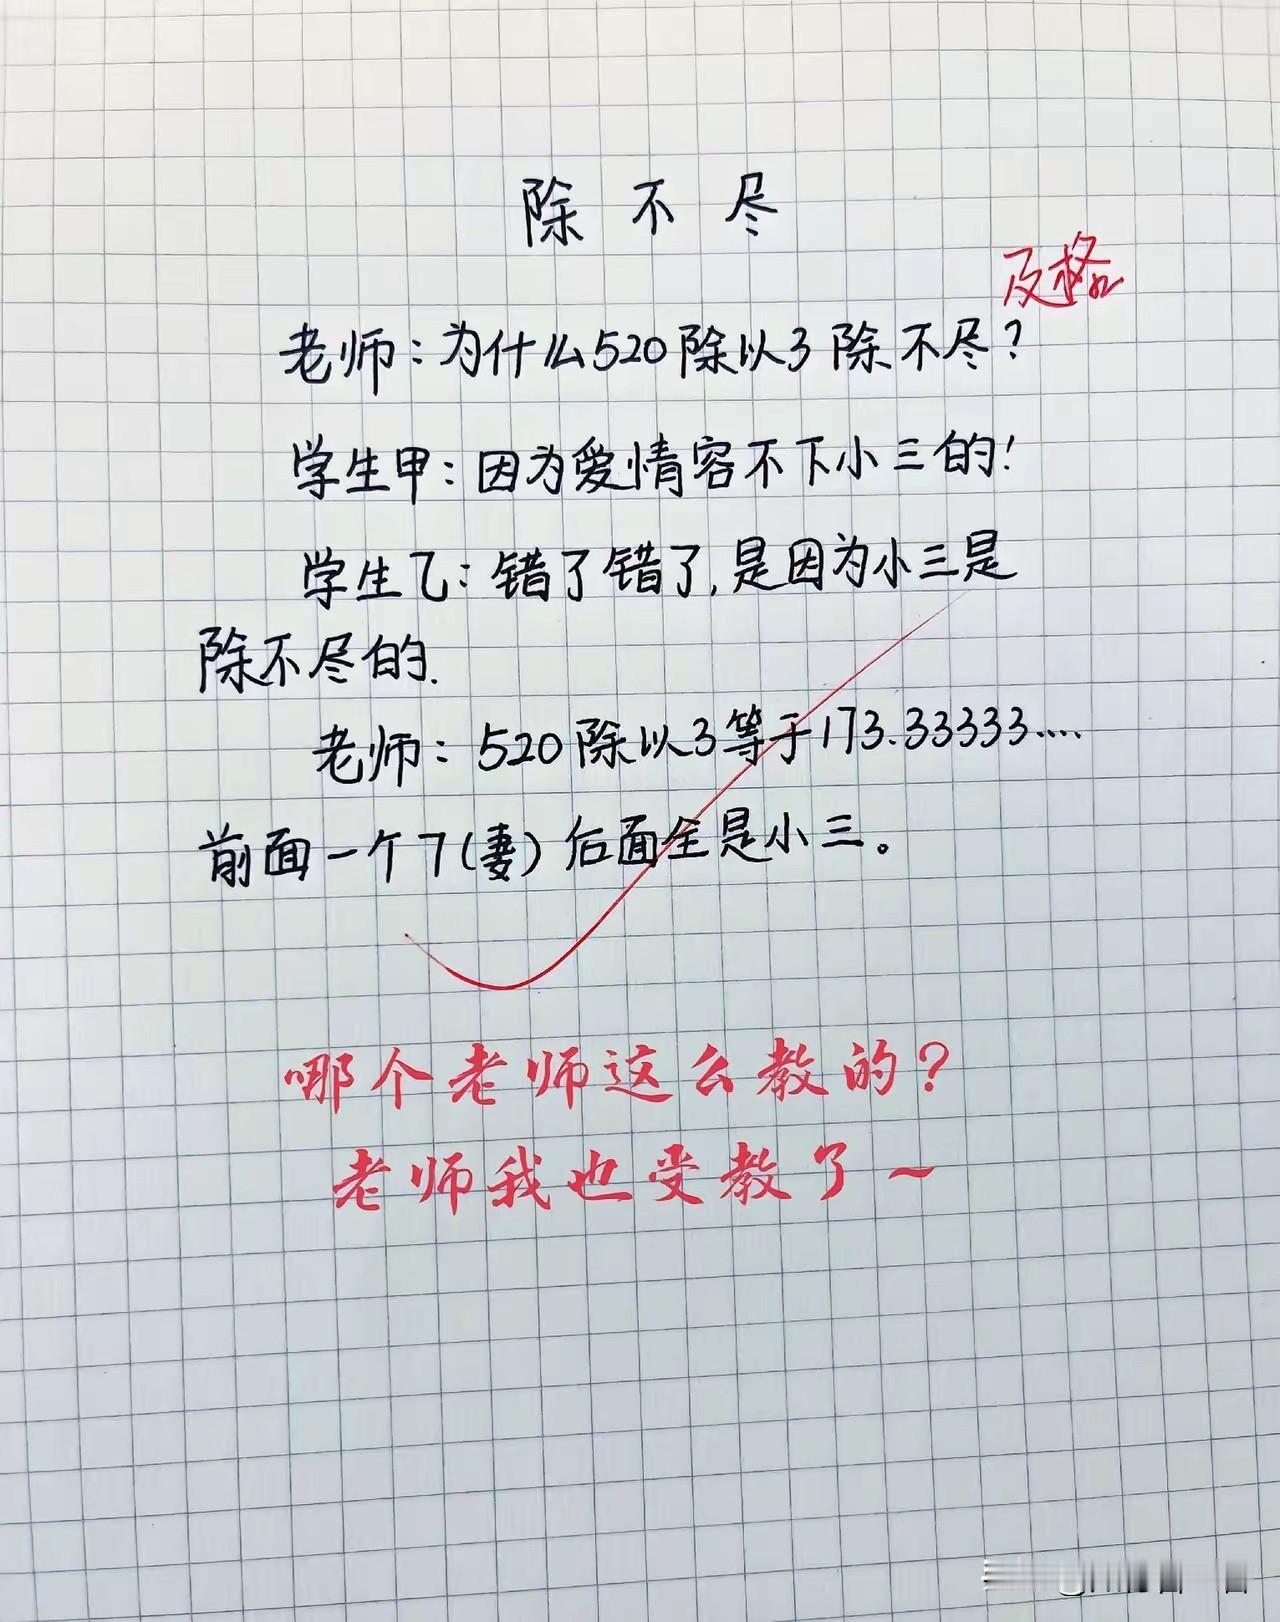 除不尽
及格
老师:为什么520除以3除不尽?
学生甲:因为爱情容不下小三的!
学生乙:错了错了,是因为小三是
除不尽的.
老师:520除以3等于173.33333....
前面一个7(妻)后面全是小三。
哪个老师这么教的?
老师我也受教了~